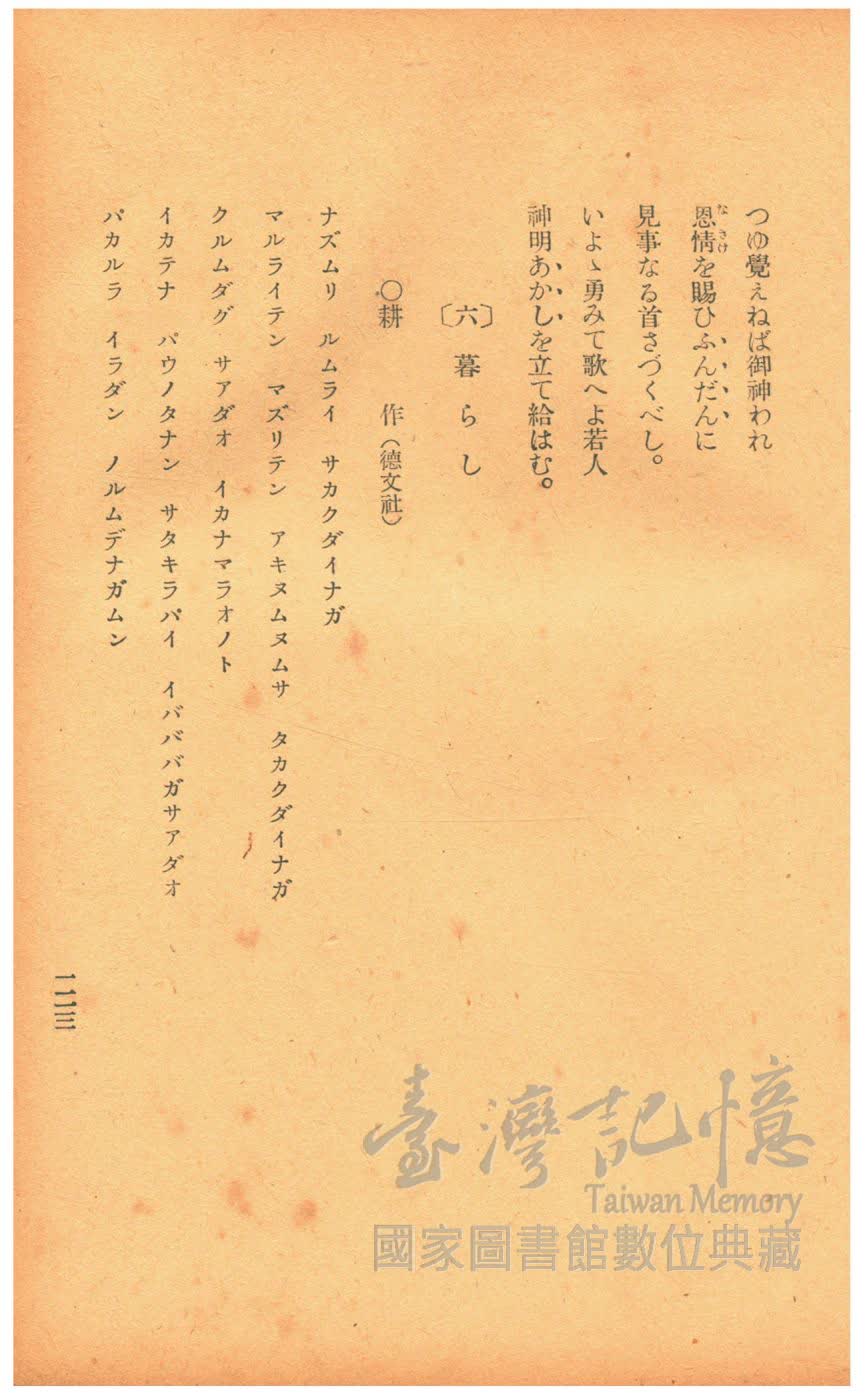 つゆ覺えねば御神われ
恩情を賜ひふんだんに
見事なる首さづくべし。
いよゝ勇みて歌へよ若人
神明あかしを立て給はむ。
〔六〕暮らし
○耕　作（德文社）
ナズムリ　ルムライ　サカクダイナガ
マルライテン　マズリテン　アキヌムヌムサ　タカクダイナガ
クルムダグ　サアダオ　イカナマラオノト
イカテナ　パウノタナン　サタキラパイ　イバババガサアダオ
パカルラ　イラダン　ノルムデナガムン
一二三
臺灣記憶
Taiwan Memory
國家圖書館數位典藏